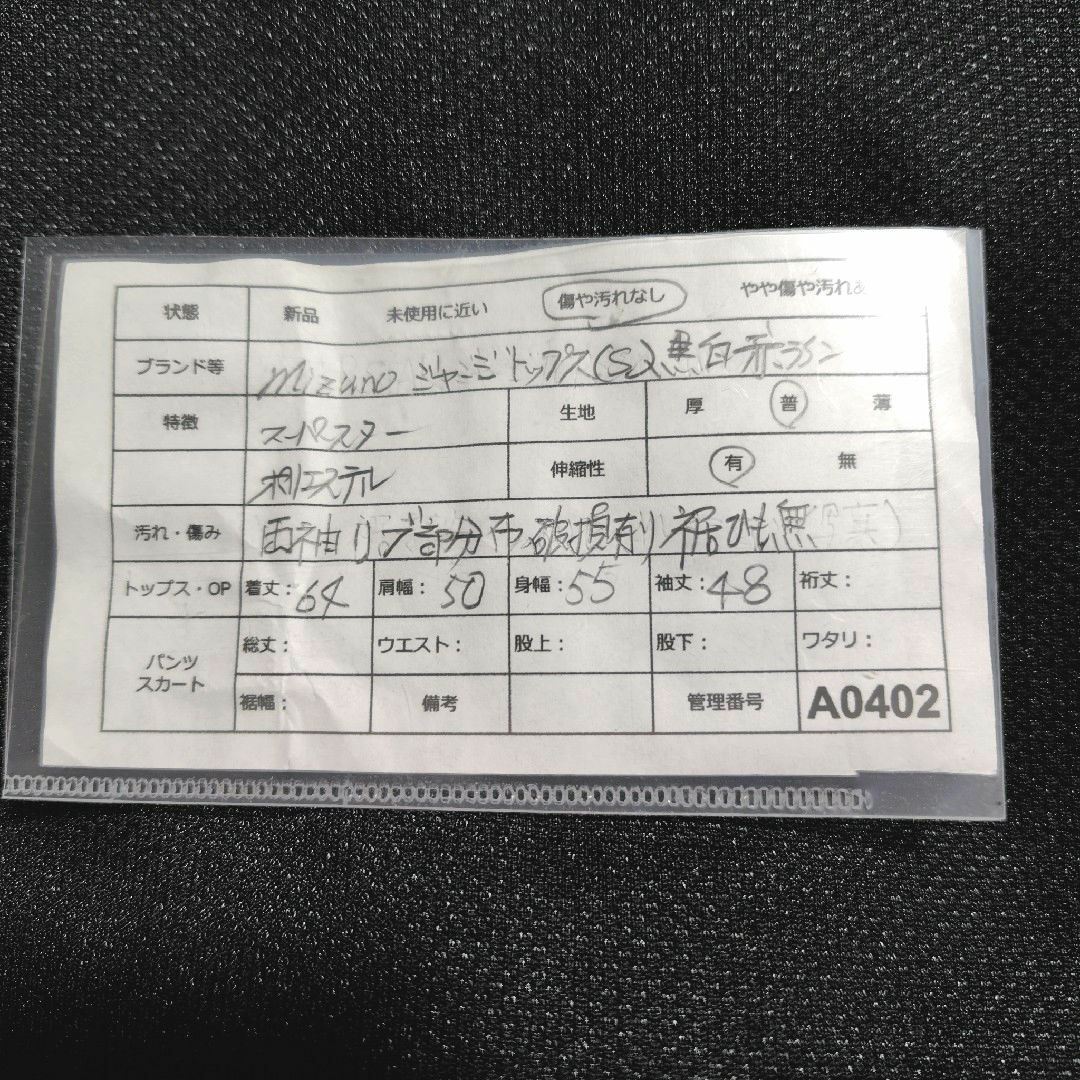 状態 新品 未使用に近い 傷や汚れなし やや傷や汚れあ
ブランド等 Mizuno ジャージトップス(S) 黒白赤ライン
特徴 スーパースター 生地 厚 普 薄
ポリエステル 伸縮性 有 無
汚れ・傷み 両袖リブ部分 破損有り 裾ひも無
トップス・OP 着丈：64 肩幅：50 身幅：55 袖丈：48 裄丈：
パンツ スカート 総丈： ウエスト： 股上： 股下： ワタリ：
裾幅： 備考 管理番号 A0402